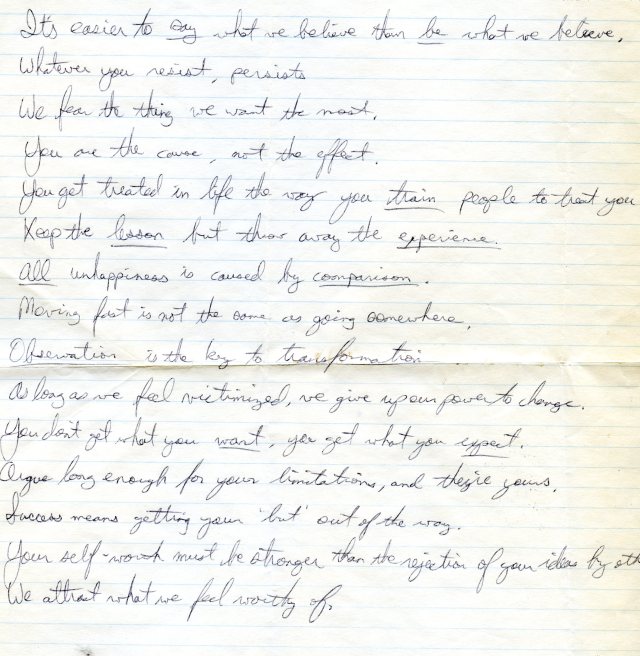 It's easier to say what we believe than be what we believe.
Whatever you resist, persists
We fear the thing we want the most.
You are the cause, not the effect.
You get treated in life the way you train people to treat you
Keep the lesson but throw away the experience.
All unhappiness is caused by comparison.
Moving fast is not the same as going somewhere.
Observation is the key to transformation
As long as we feel victimized, we give up our power to change.
You don't get what you want, you get what you expect.
Argue long enough for your limitations, and they're yours.
Success means getting your 'but' out of the way.
Your self-worth must be stronger than the rejection of your ideas by oth
We attract what we feel worthy of.